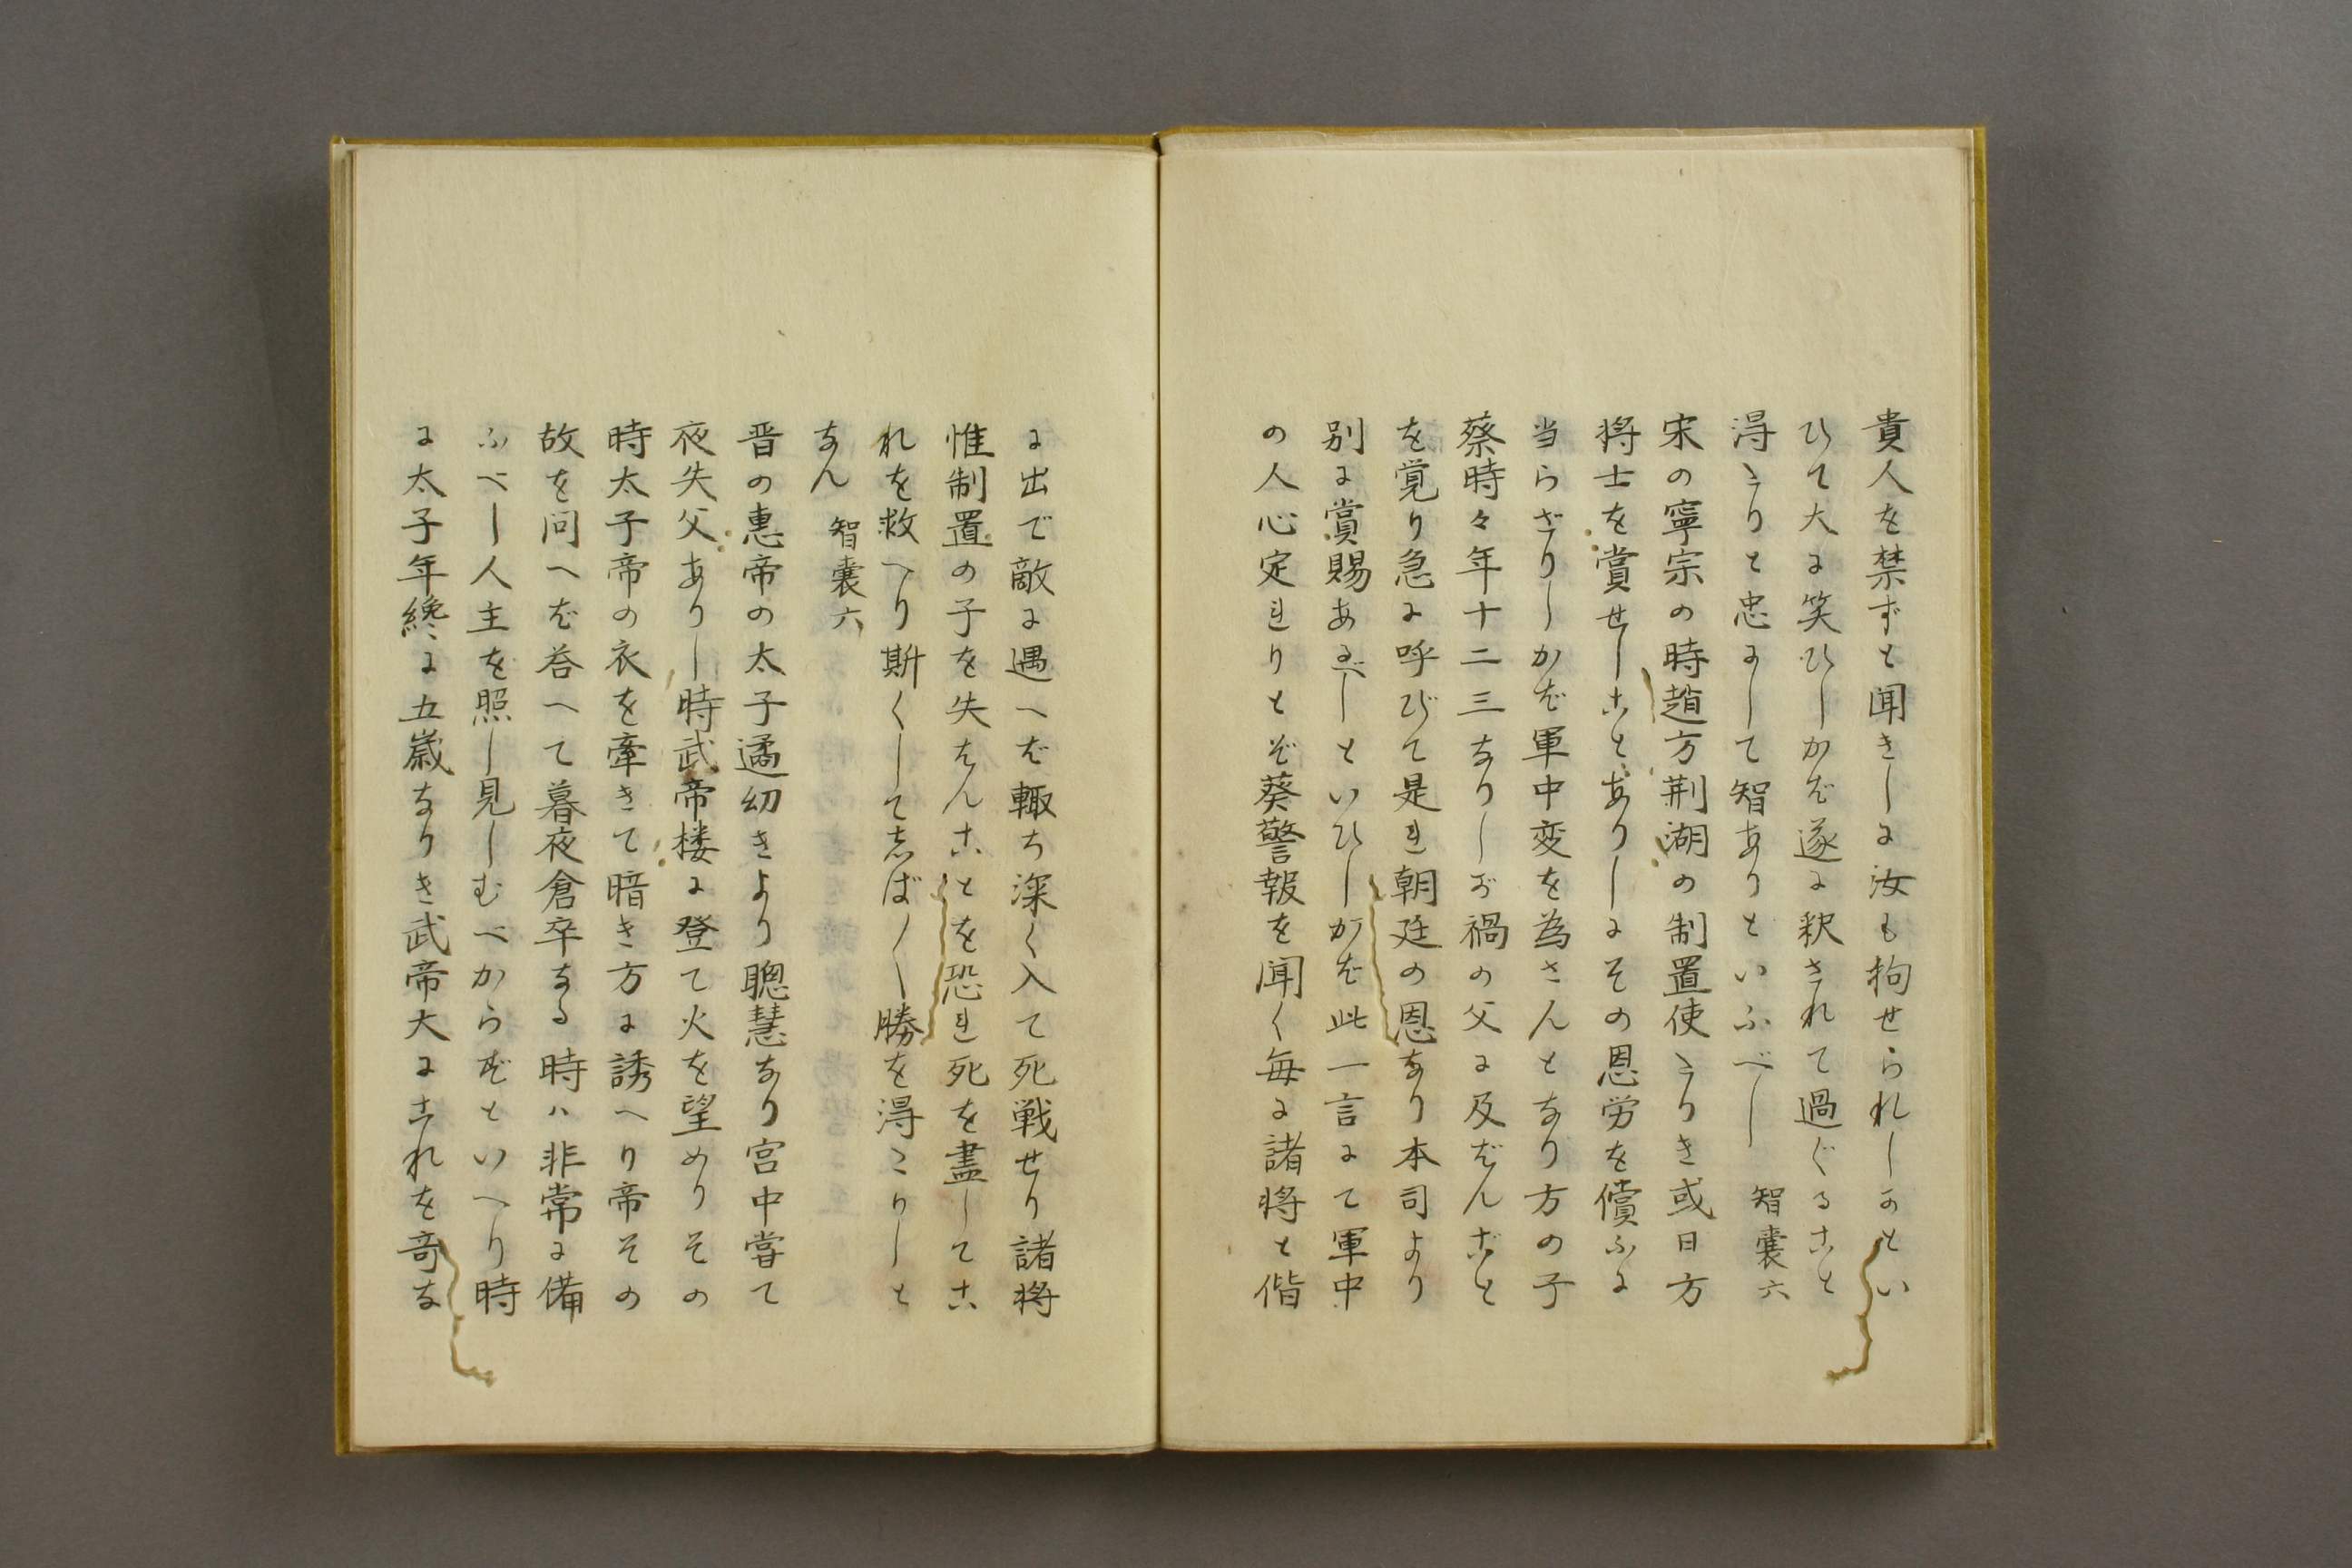 貴人を禁ずと聞きしに汝も拘せられしかとい
ひて大に笑ひしかば遂に釈されて過ぐること
得たりと忠にして智ありといふべし　智嚢六
宋の寧宗の時趙方荊湖の制置使たりき或日方
将士を賞せしことありしにその恩労を償ふに
当らざりしかば軍中変を為さんとなり方の子
蔡時々年十二三なりしが禍の父に及ばんこと
を覚り急に呼びて是れ朝廷の恩なり本司より
別に賞賜あるべしといひしかば此一言にて軍中
の人心定れりとぞ葵警報を聞く毎に諸将と偕
に出で敵に遇へば輙ち深く入て死戦せり諸将
惟制置の子を失はんことを恐れ死を盡してこ
れを救へり斯くしてしば〱勝を得たりしと
なん　智嚢六
晋の惠帝の太子遹幼きより聰慧なり宮中嘗て
夜失火ありし時武帝楼に登て火を望めりその
時太子帝の衣を牽きて暗き方に誘へり帝その
故を問へば答へて暮夜倉卒なる時ハ非常に備
ふべし人主を照し見しむべからずといへり時
に太子年纔に五歳なりき武帝大にこれを奇な